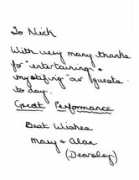 To Nick
With very many thanks
for "entertaining" &
mystifying "our" guests
to day.
Great Performance
Best Wishes
Mary & Alan
(Dearsley)